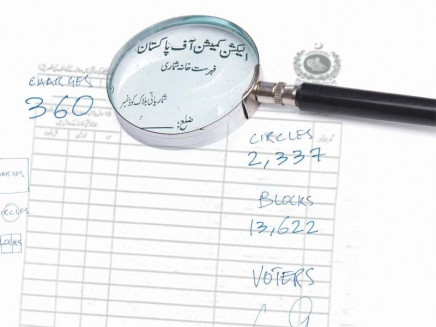 الیکشن کمیشن آف پاکستان
فہرست خانہ شماری
شماریاتی بلاک کوڈ نمبر
ضلع:
CHARGES
360
CIRCLES
2,337
BLOCKS
13,622
VOTERS
CHARGES
CIRCLES
BLOCKS